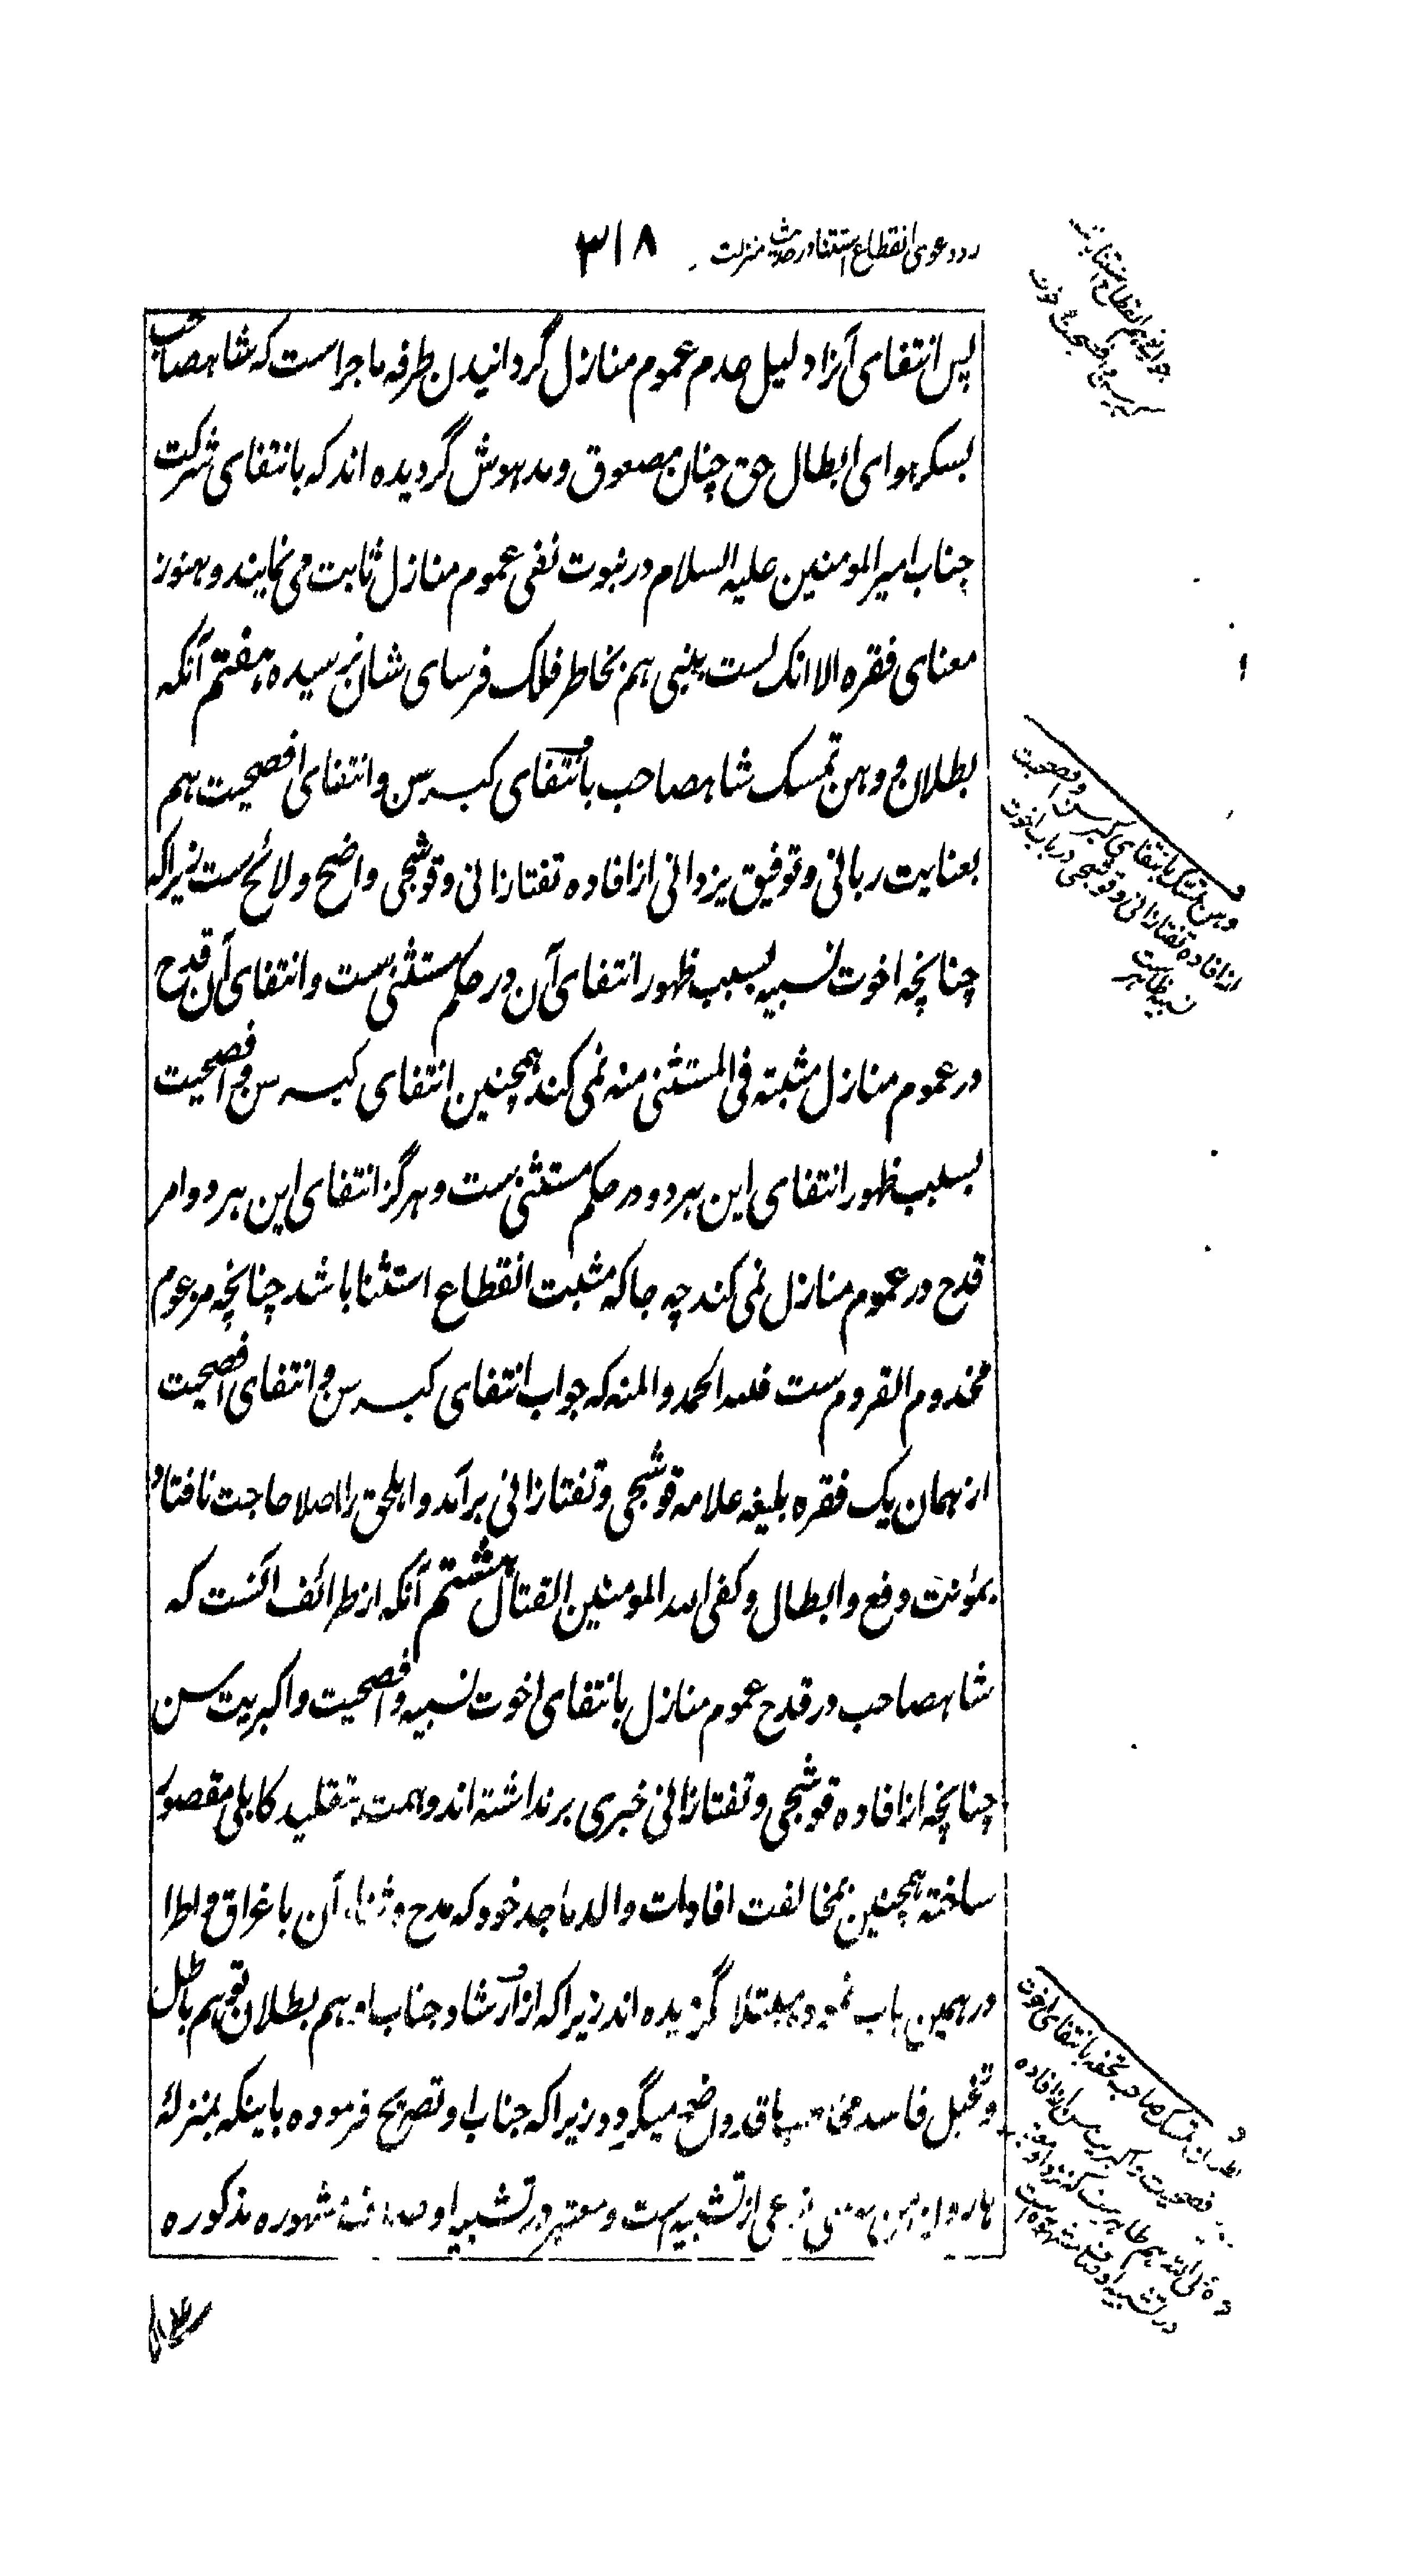 رد دعوی انقطاع استثنا در حدیث منزلت ۳۱۸
پس انتفای آنرا دلیل عدم عموم منازل گردانیدن طرفه ماجراست که شاهصاحب
بسکر هوای ابطال حق چنان مصعوق و مدهوش گردیده اند که بانتفای شرکت
جناب امیر المومنین علیه السلام در نبوت نفی عموم منازل ثابت می نمایند و هنوز
معنای فقره الا انک لست بنبی هم بخاطر فلک فرسای شان نرسیده هفتم آنکه
بطلان و وهن تمسک شاهصاحب بانتفای کبر سن و انتفای افصحیت هم
بعنایت ربانی و توفیق یزدانی از افاده تفتازانی و قوشجی واضح و لائح ست زیراکه
چنانچه اخوت نسبیه بسبب ظهور انتفای آن در حکم مستثنی ست و انتفای آن قدح
در عموم منازل مثبته فی المستثنی منه نمی کند همچنین انتفای کبر سن و افصحیت
بسبب ظهور انتفای این هر دو در حکم مستثنی ست و هرگز انتفای این هر دو امر
قدح در عموم منازل نمی کند چه جا که مثبت انقطاع استثنا باشد چنانچه مزعوم
مخدوم القروم ست فلله الحمد و المنه که جواب انتفای کبر سن و انتفای افصحیت
از همان یک فقره بلیغه علامه قوشجی و تفتازانی برآمد و اهلحق را اصلا حاجت نافتاد
بمؤنت دفع و ابطال و کفی الله المومنین القتال هشتم آنکه از طرائف آنست که
شاهصاحب در قدح عموم منازل بانتفای اخوت نسبیه و افصحیت و اکبریت سن
چنانچه از افاده قوشجی و تفتازانی خبری برنداشته اند و همت بتقلید کابلی مقصور
ساخته همچنین بمخالفت افادات والد ماجد خود که مدح و ثنای آن باغراق و اطرا
در همین باب نموده مبتلا گردیده اند زیراکه از ارشاد جناب او هم بطلان توهم باطل
و تخیل فاسد مخاطب باقدر واضح میگردد زیراکه جناب او تصریح فرموده باینکه بمنزلة
هارون من موسی نوعی از تشبیه ست و معتبر در تشبیه اوصاف مشهوره مذکوره
وهن تمسک بانتفای کبر سن و افصحیت
از افاده تفتازانی و قوشجی در باب اخوت
نسبیه ظاهرست
تمسک صاحب تحفه بانتفای اخوت
فصحیت و اکبریت سن از افاده
ولی الله هم ظاهرست که نزد او معتبر
در تشبیه اوصاف مشهوره است